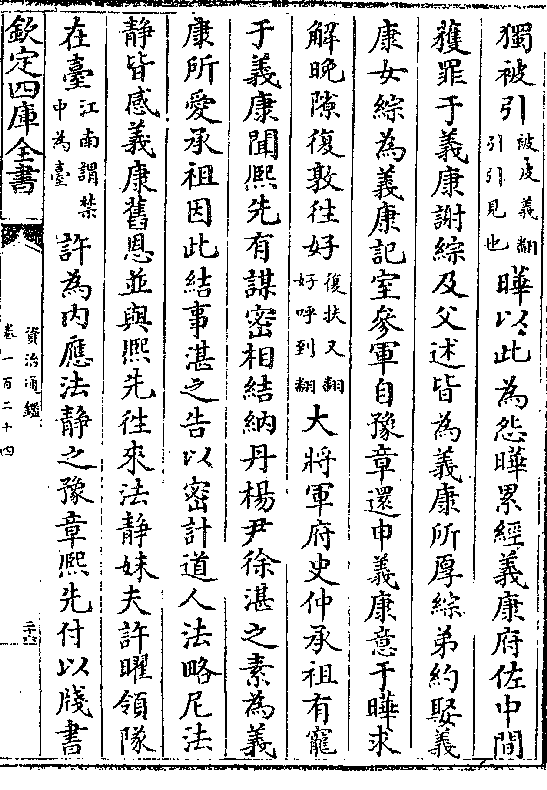 獨被引被皮義翻引引見也曄以此為怨曄累經義康府佐中間
獲罪于義康謝綜及父述皆為義康所厚綜弟約娶義
康女綜為義康記室參軍自豫章還申義康意于曄求
解晚隙復敦往好復扶又翻好呼到翻大將軍府史仲承祖有寵
于義康聞熙先有謀密相結納丹楊尹徐湛之素為義
康所愛承祖因此結事湛之告以密計道人法略尼法
静皆感義康舊恩並與熙先往來法静妹夫許曜領隊
在臺江南謂禁中為臺許為内應法静之豫章熙先付以牋書
欽定四庫全書
資治通鑑
卷一百二十四